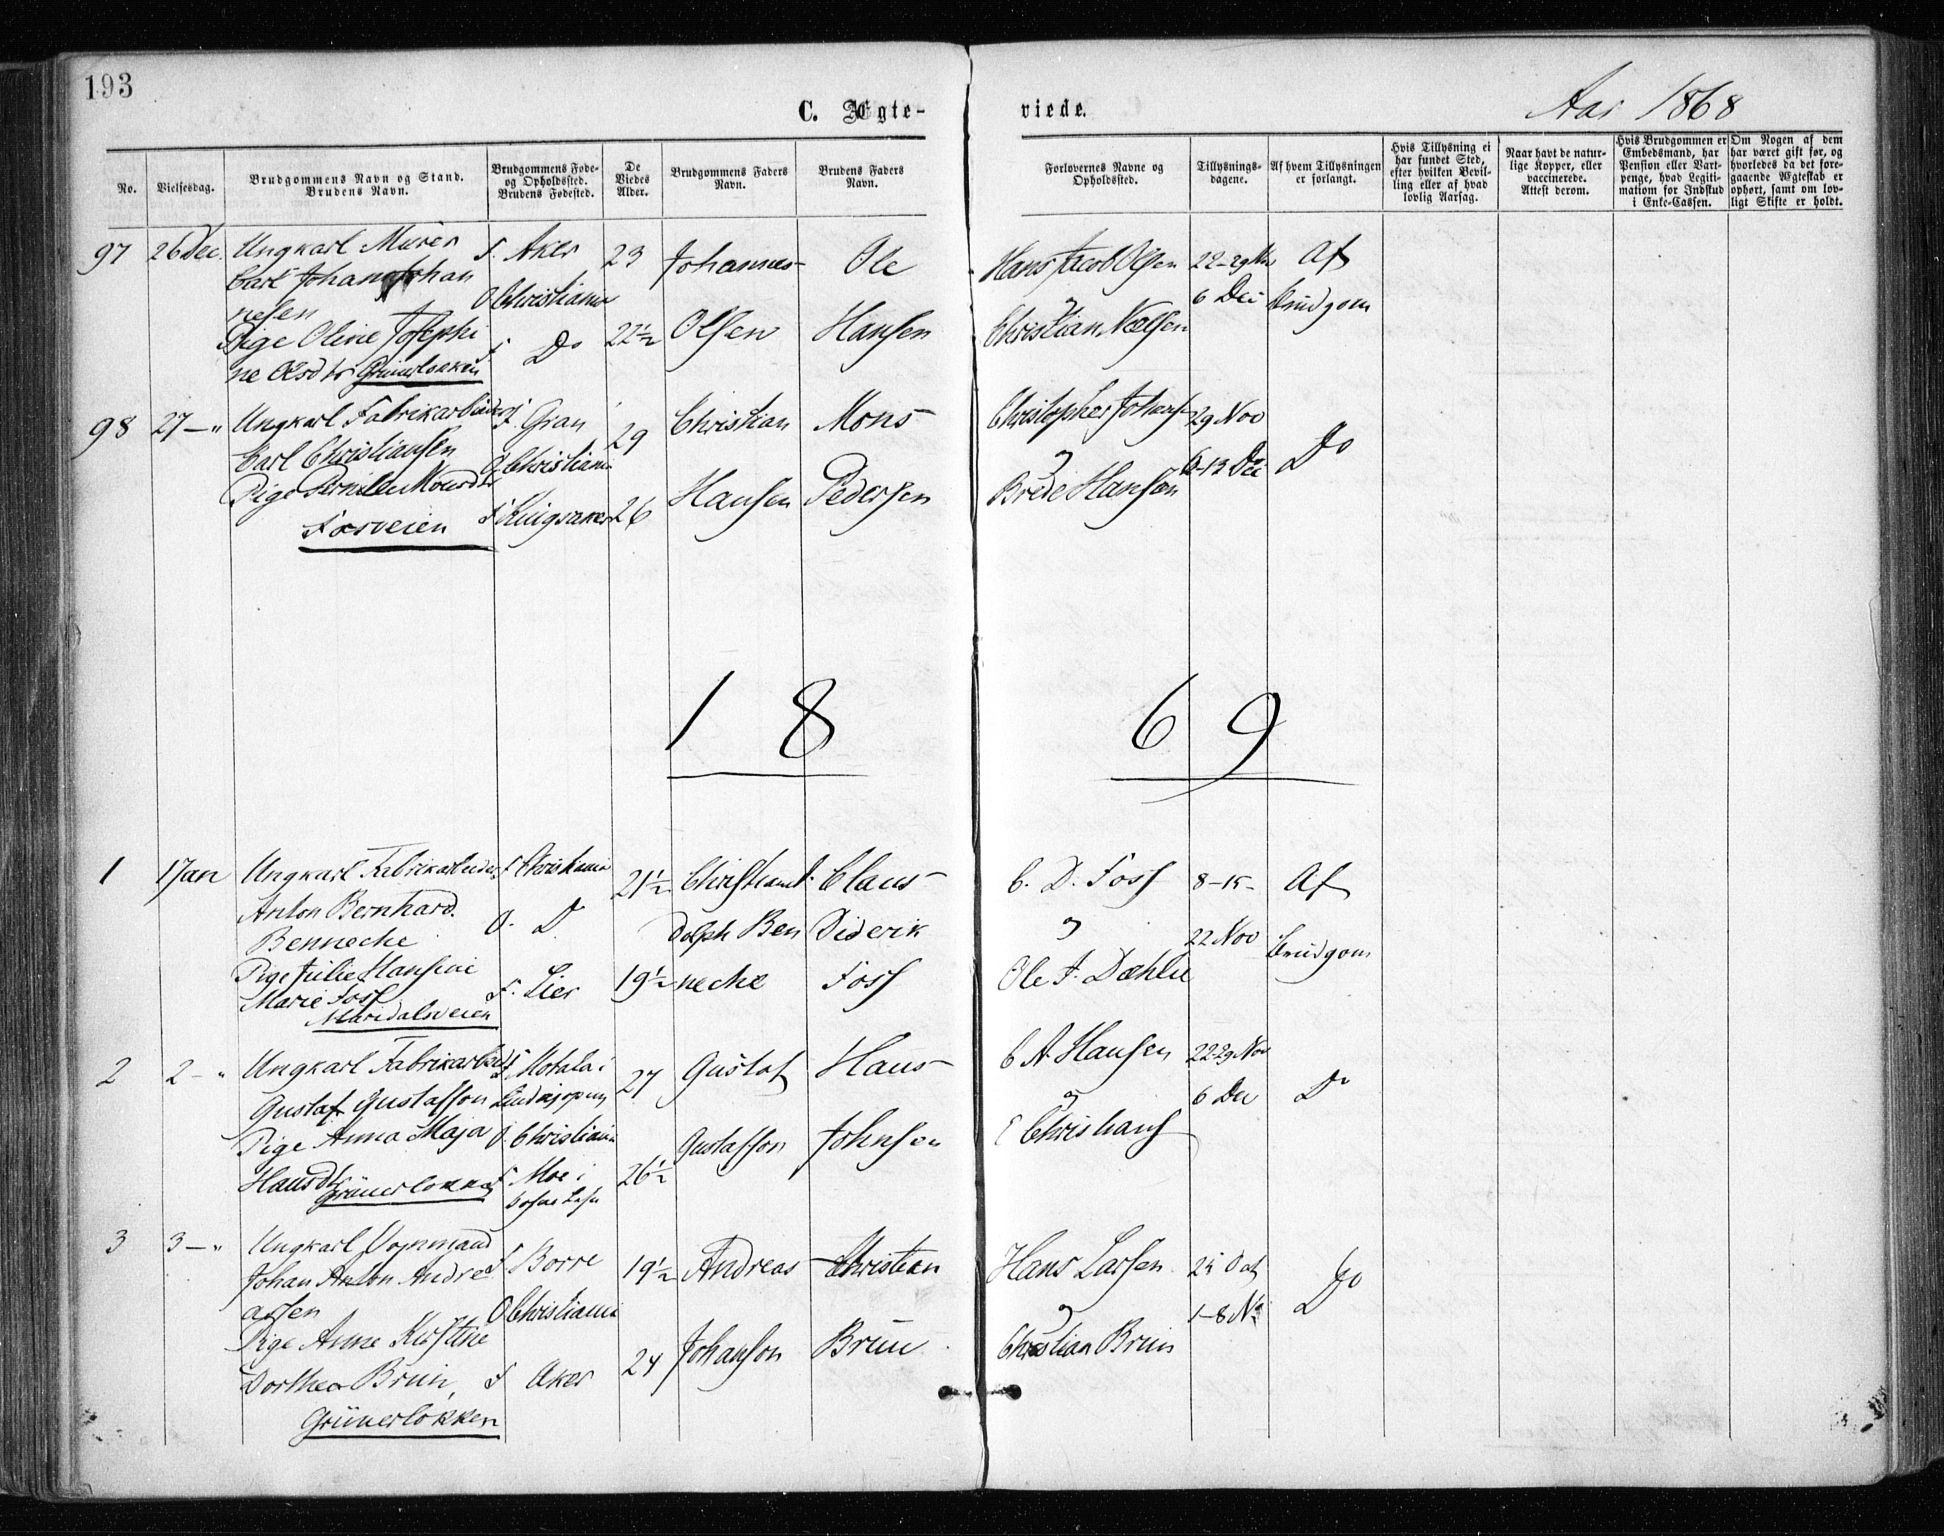 193
C. Ægte-
viede.
Aar 1868
No.
Vielsesdag.
Brudgommens Navn og Stand.
Brudens Navn.
Brudgommens Føde-
og Opholdssted.
Brudens Fødested.
De
Viedes
Alder.
Brudgommens Faders
Navn.
Brudens Faders
Navn.
Forlovernes Navne og
Opholdssted.
Tillysnings-
dagene.
Af hvem Tillysningen
er forlangt.
Hvis Tillysning ei
har fundet Sted,
efter hvilken Bevil-
ling eller af hvad
lovlig Aarsag.
Naar havt de natur-
lige Kopper, eller
vaccinerede.
Attest derom.
Hvis Brudgommen er
Embedsmand, har
Pension eller Vart-
penge, hvad Legiti-
mation for Indskud
i Enke-Cassen.
Om Nogen af dem
har været gift før, og
hvorledes da det fore-
gaaende Ægteskab er
ophørt, samt om lov-
ligt Skifte er holdt.
97 26 Dec.
Ungkarl Murer
Carl Johan Johan
nesen
Pige Oline Josephi
ne Olsdtr Grünerløkken
F. Aker
O Christiania
F Do
23
22½
Johannes
Olsen
Ole
Hansen
Hans Jacob Olsen
og
Christian Nielsen
22-29 Nov
6 Dec
Af
Brudgom
98 27 — "
Ungkarl Fabrikarbeider
Carl Christiansen
Pige Pernille Monsdtr
Fosveien
F. Gran
O. Christiania
F Ringsaker
29
26
Christian
Hansen
Mons
Pedersen
Christopher Johansen
og
Brede Hansen
29 Nov
6-13 Dec
Do
18 69
1 1 Jan
Ungkarl Fabrikarbeider
Anton Bernhard
Bennecke
Pige Julie Hansine
Marie Foss
Maridalsveien
F Christiania
O. D
F. Lier
21½
19½
Christian
dolph Ben
necke
Claus
Diderik
Foss
C. D. Foss
og
Ole J. Dæhlie
8-15-
22 Nov
Af
Brudgom
2 2 — "
Ungkarl Fabrikarbeid
Gustaf Gustafsson
Pige Anna Maja
Hansdtr
Grünerløkken
F Motala i
Lindkjøping
O. Christiania
F Moe i
27
26½
Gustaf
Gustafsson
Hans
Johnsen
C A. Hansen
og
E Christians
22-29 Nov
6 Dec
Do
3 3 — "
Ungkarl Vognmand
Johan Anton Andre
assen
Pige Anne Kirstine
Dorthea Bruun,
Grünerløkken
F Borre
O Christiania
F Aker
19½
24
Andreas
Johanson
Christian
Bruun
Hans Larsen
og
Christian Bruun
25 Oct
1-8 Nov
Do